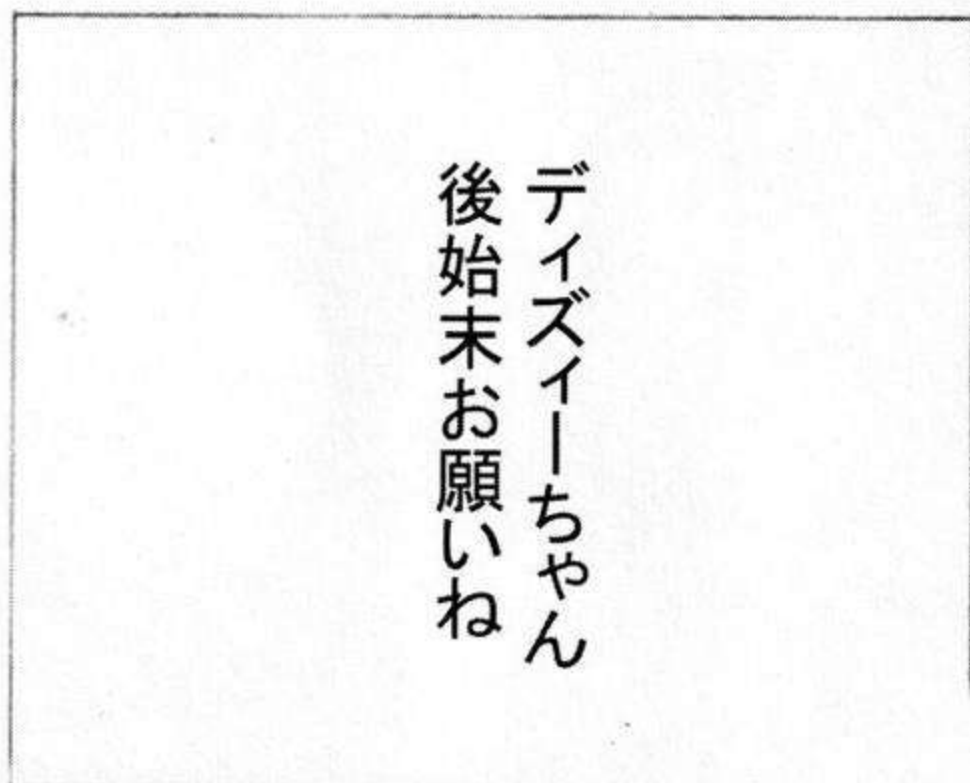 ディズィーちゃん
後始末お願いね